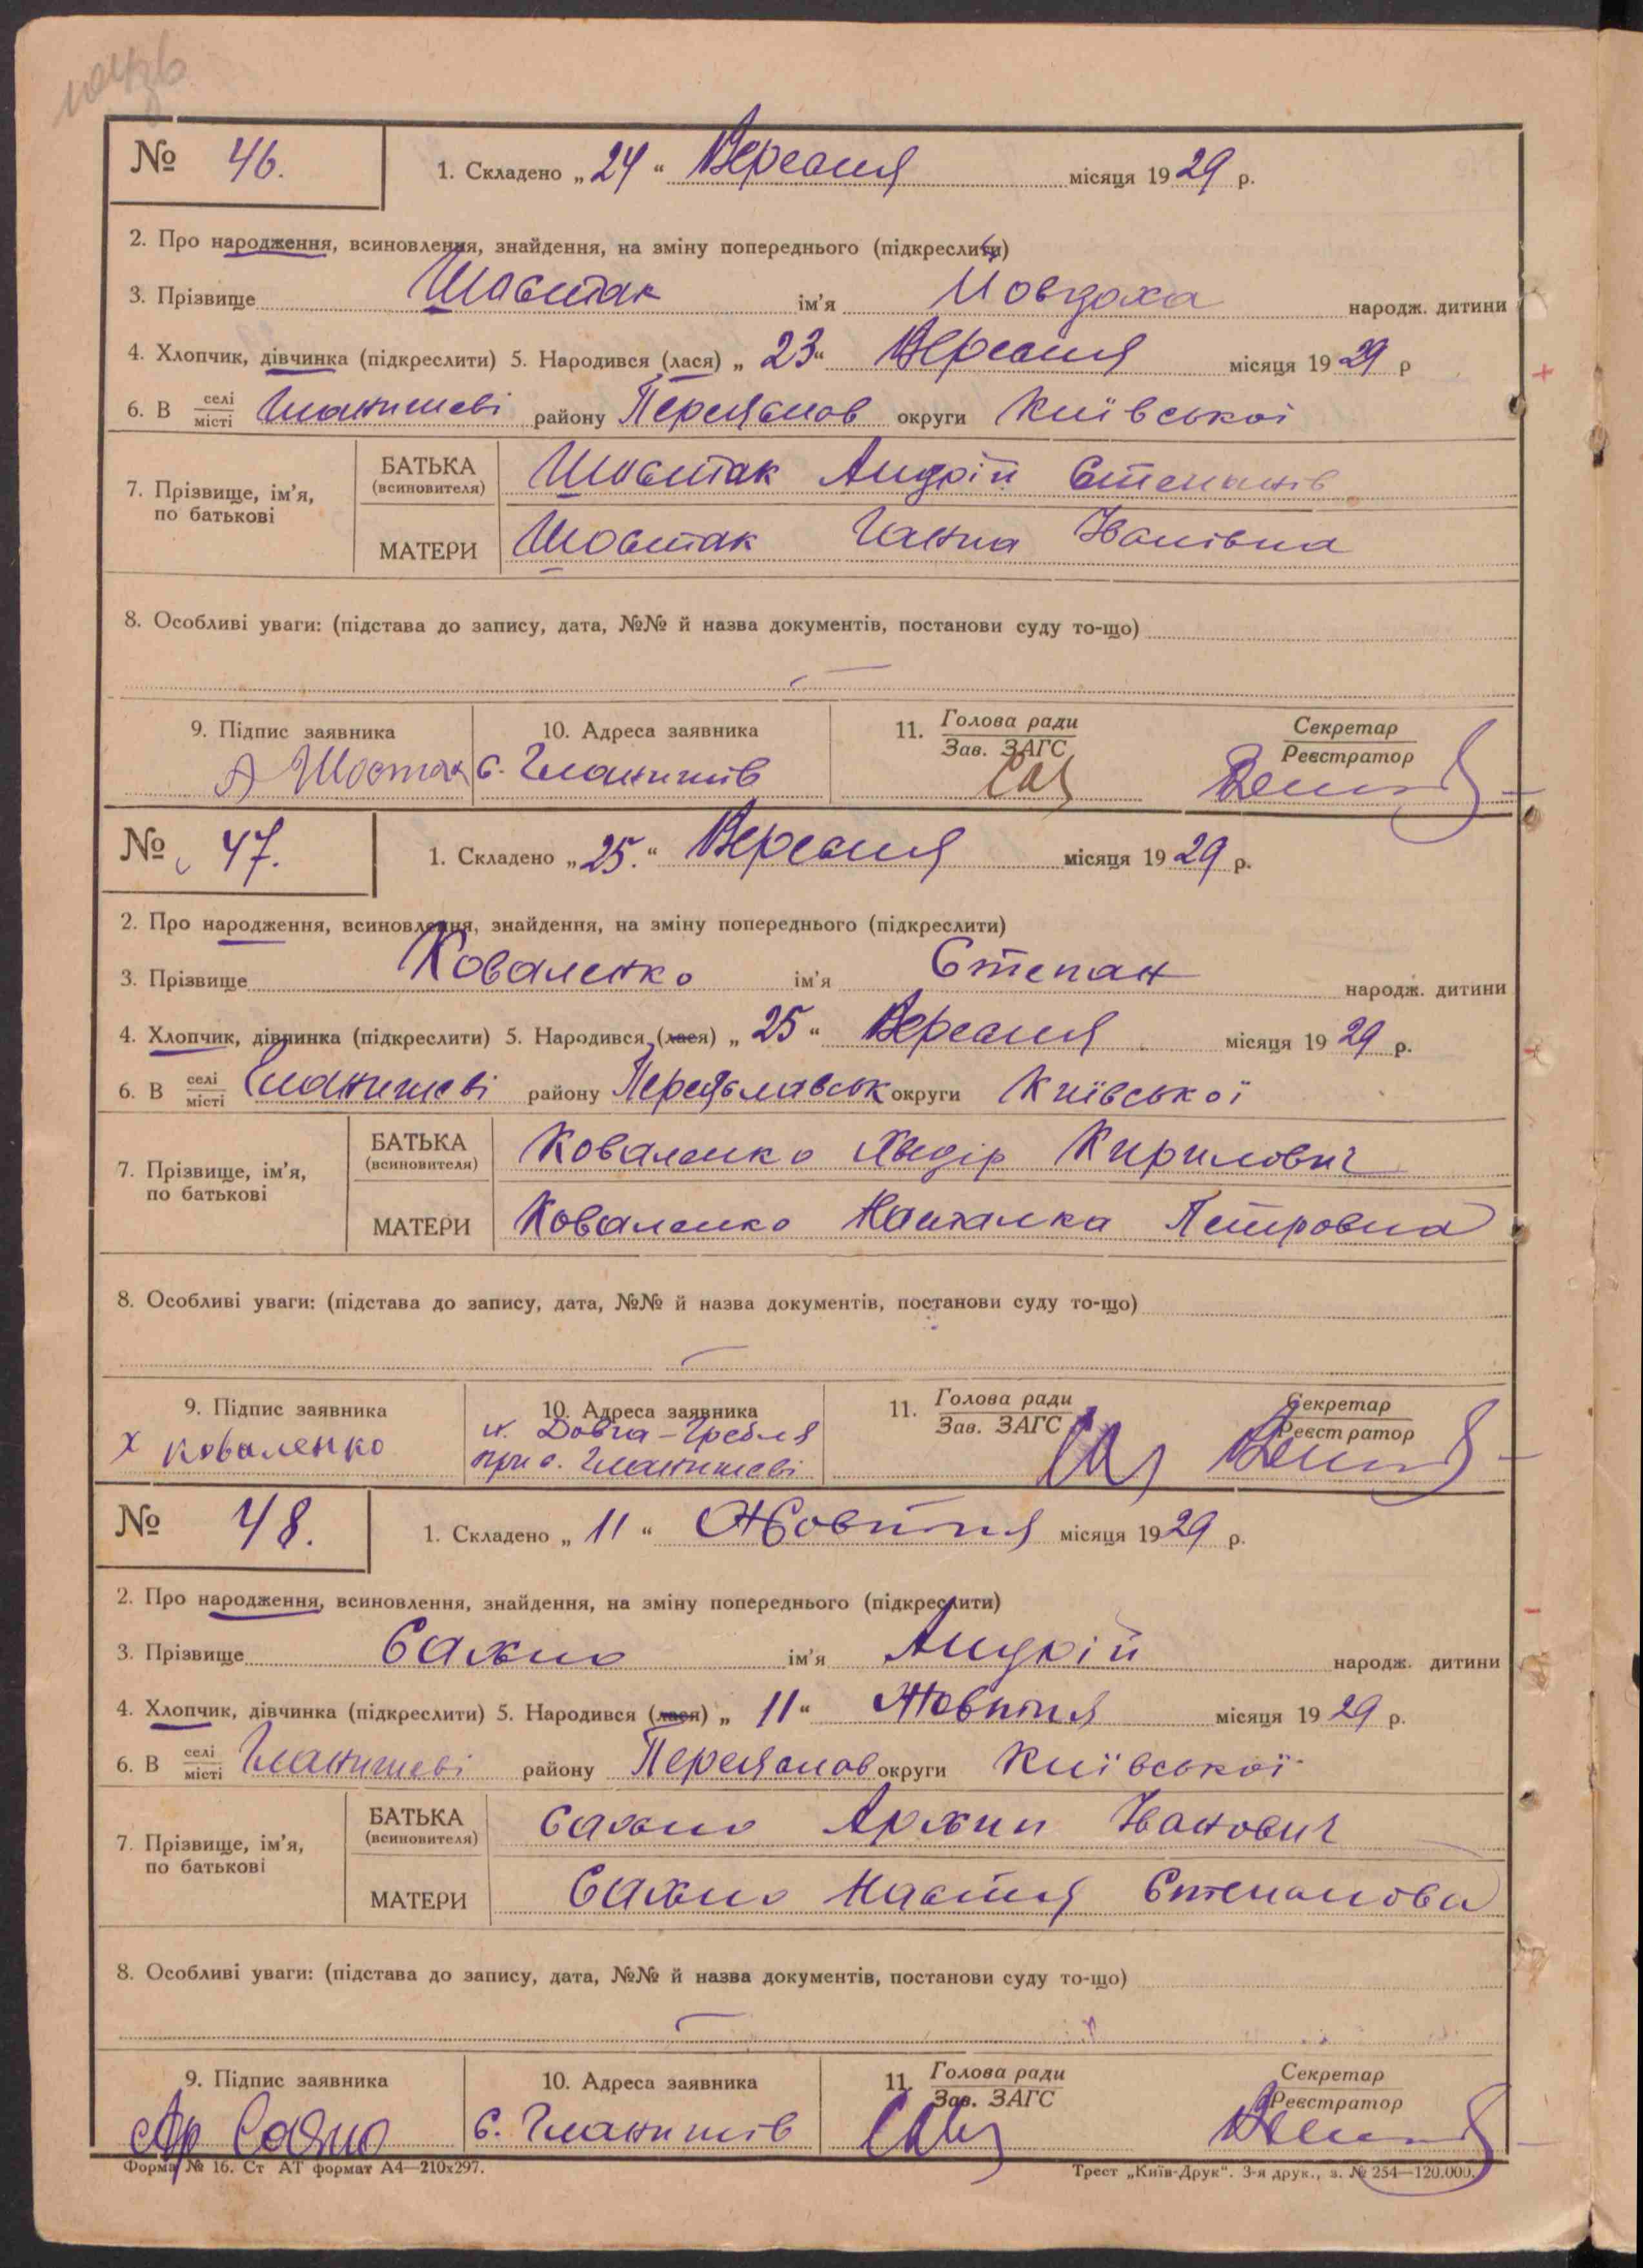 № 46. 1. Складено „ 24 “ Вересня місяця 1929 р.
2. Про народження, всиновлення, знайдення, на зміну попереднього (підкреслити)
3. Прізвище Шостак ім’я Йовдоха народж. дитини
4. Хлопчик, дівчинка (підкреслити) 5. Народився (лася) „ 23 “ Вересня місяця 1929 р
6. В селі місті Гланишеві району Переяслов округи Київської
7. Прізвище, ім’я, по батькові
БАТЬКА (всиновителя) Шостак Андрій Степанів
МАТЕРИ Шостак Ганна Іванівна
8. Особливі уваги: (підстава до запису, дата, №№ й назва документів, постанови суду то-що)
9. Підпис заявника 10. Адреса заявника 11. Голова ради Зав. ЗАГС Секретар Реєстратор
А Шостак с. Гланишів
№ 47. 1. Складено „ 25. “ Вересня місяця 1929 р.
2. Про народження, всиновлення, знайдення, на зміну попереднього (підкреслити)
3. Прізвище Коваленко ім’я Степан народж. дитини
4. Хлопчик, дівчинка (підкреслити) 5. Народився (лася) „ 25 “ Вересня місяця 1929 р.
6. В селі місті Гланишеві району Переяславськ округи Київської
7. Прізвище, ім’я, по батькові
БАТЬКА (всиновителя) Коваленко Хведір Кирилович
МАТЕРИ Коваленко Наталка Петровна
8. Особливі уваги: (підстава до запису, дата, №№ й назва документів, постанови суду то-що)
9. Підпис заявника 10. Адреса заявника 11. Голова ради Зав. ЗАГС Секретар Реєстратор
х коваленко х. Довга-Гребля
при с. Гланишеві
№ 48. 1. Складено „ 11 “ Жовтня місяця 1929 р.
2. Про народження, всиновлення, знайдення, на зміну попереднього (підкреслити)
3. Прізвище Сахно ім’я Андрій народж. дитини
4. Хлопчик, дівчинка (підкреслити) 5. Народився (лася) „ 11 “ Жовтня місяця 1929 р.
6. В селі місті Гланишеві району Переяслав округи Київської
7. Прізвище, ім’я, по батькові
БАТЬКА (всиновителя) Сахно Архип Іванович
МАТЕРИ Сахно Настя Степанова
8. Особливі уваги: (підстава до запису, дата, №№ й назва документів, постанови суду то-що)
9. Підпис заявника 10. Адреса заявника 11. Голова ради Зав. ЗАГС Секретар Реєстратор
Ар Сахно с. Гланишів
Форма № 16. Ст АТ формат А4—210х297. Трест „Київ-Друк“. 3-я друк., з. № 254—120.000.